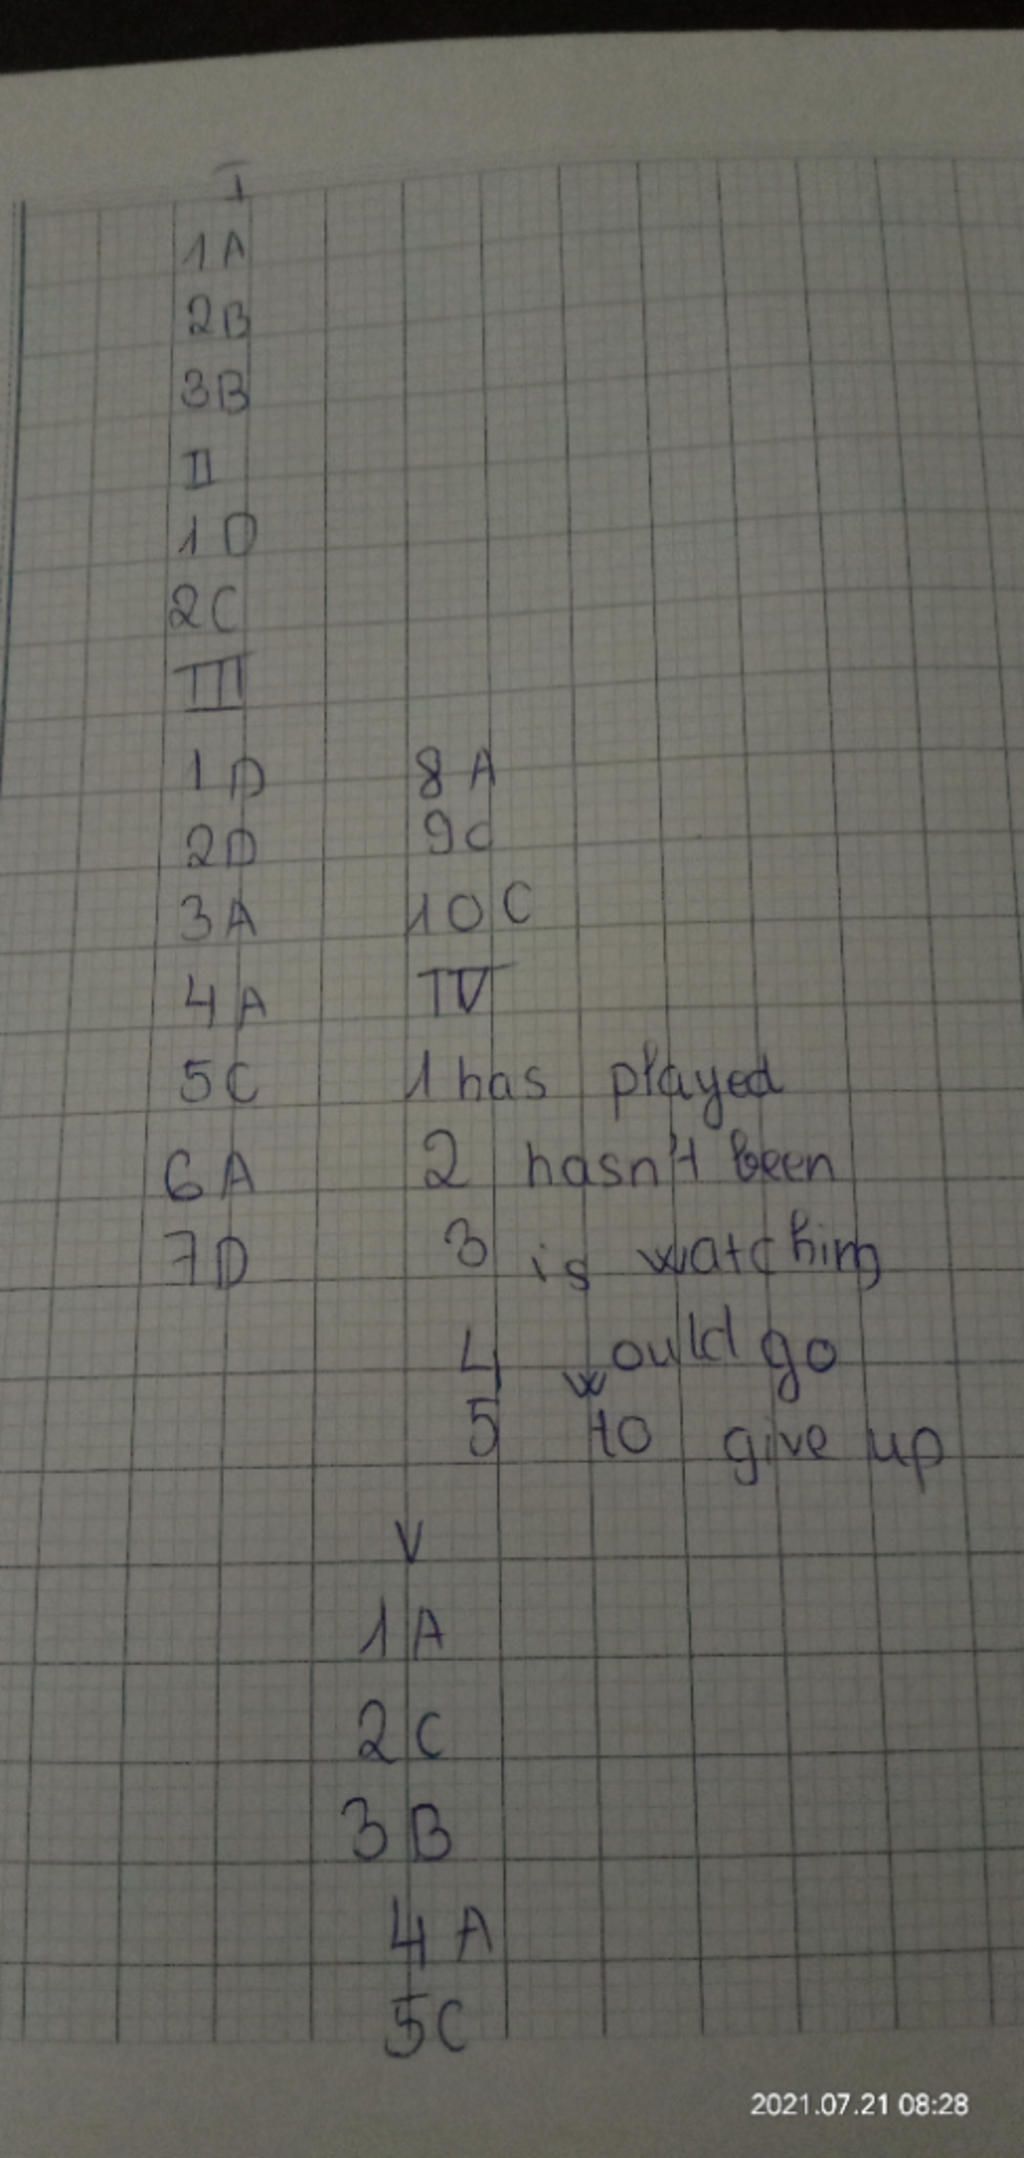 I
1A
2B
3B
II
1D
2C
III
1D
2D
3A
4A
5C
6A
7D
8A
9C
10C
IV
1 has played
2 hasn't been
3 is watching
4 would go
5 to give up
V
1A
2C
3B
4A
5C
2021.07.21 08:28